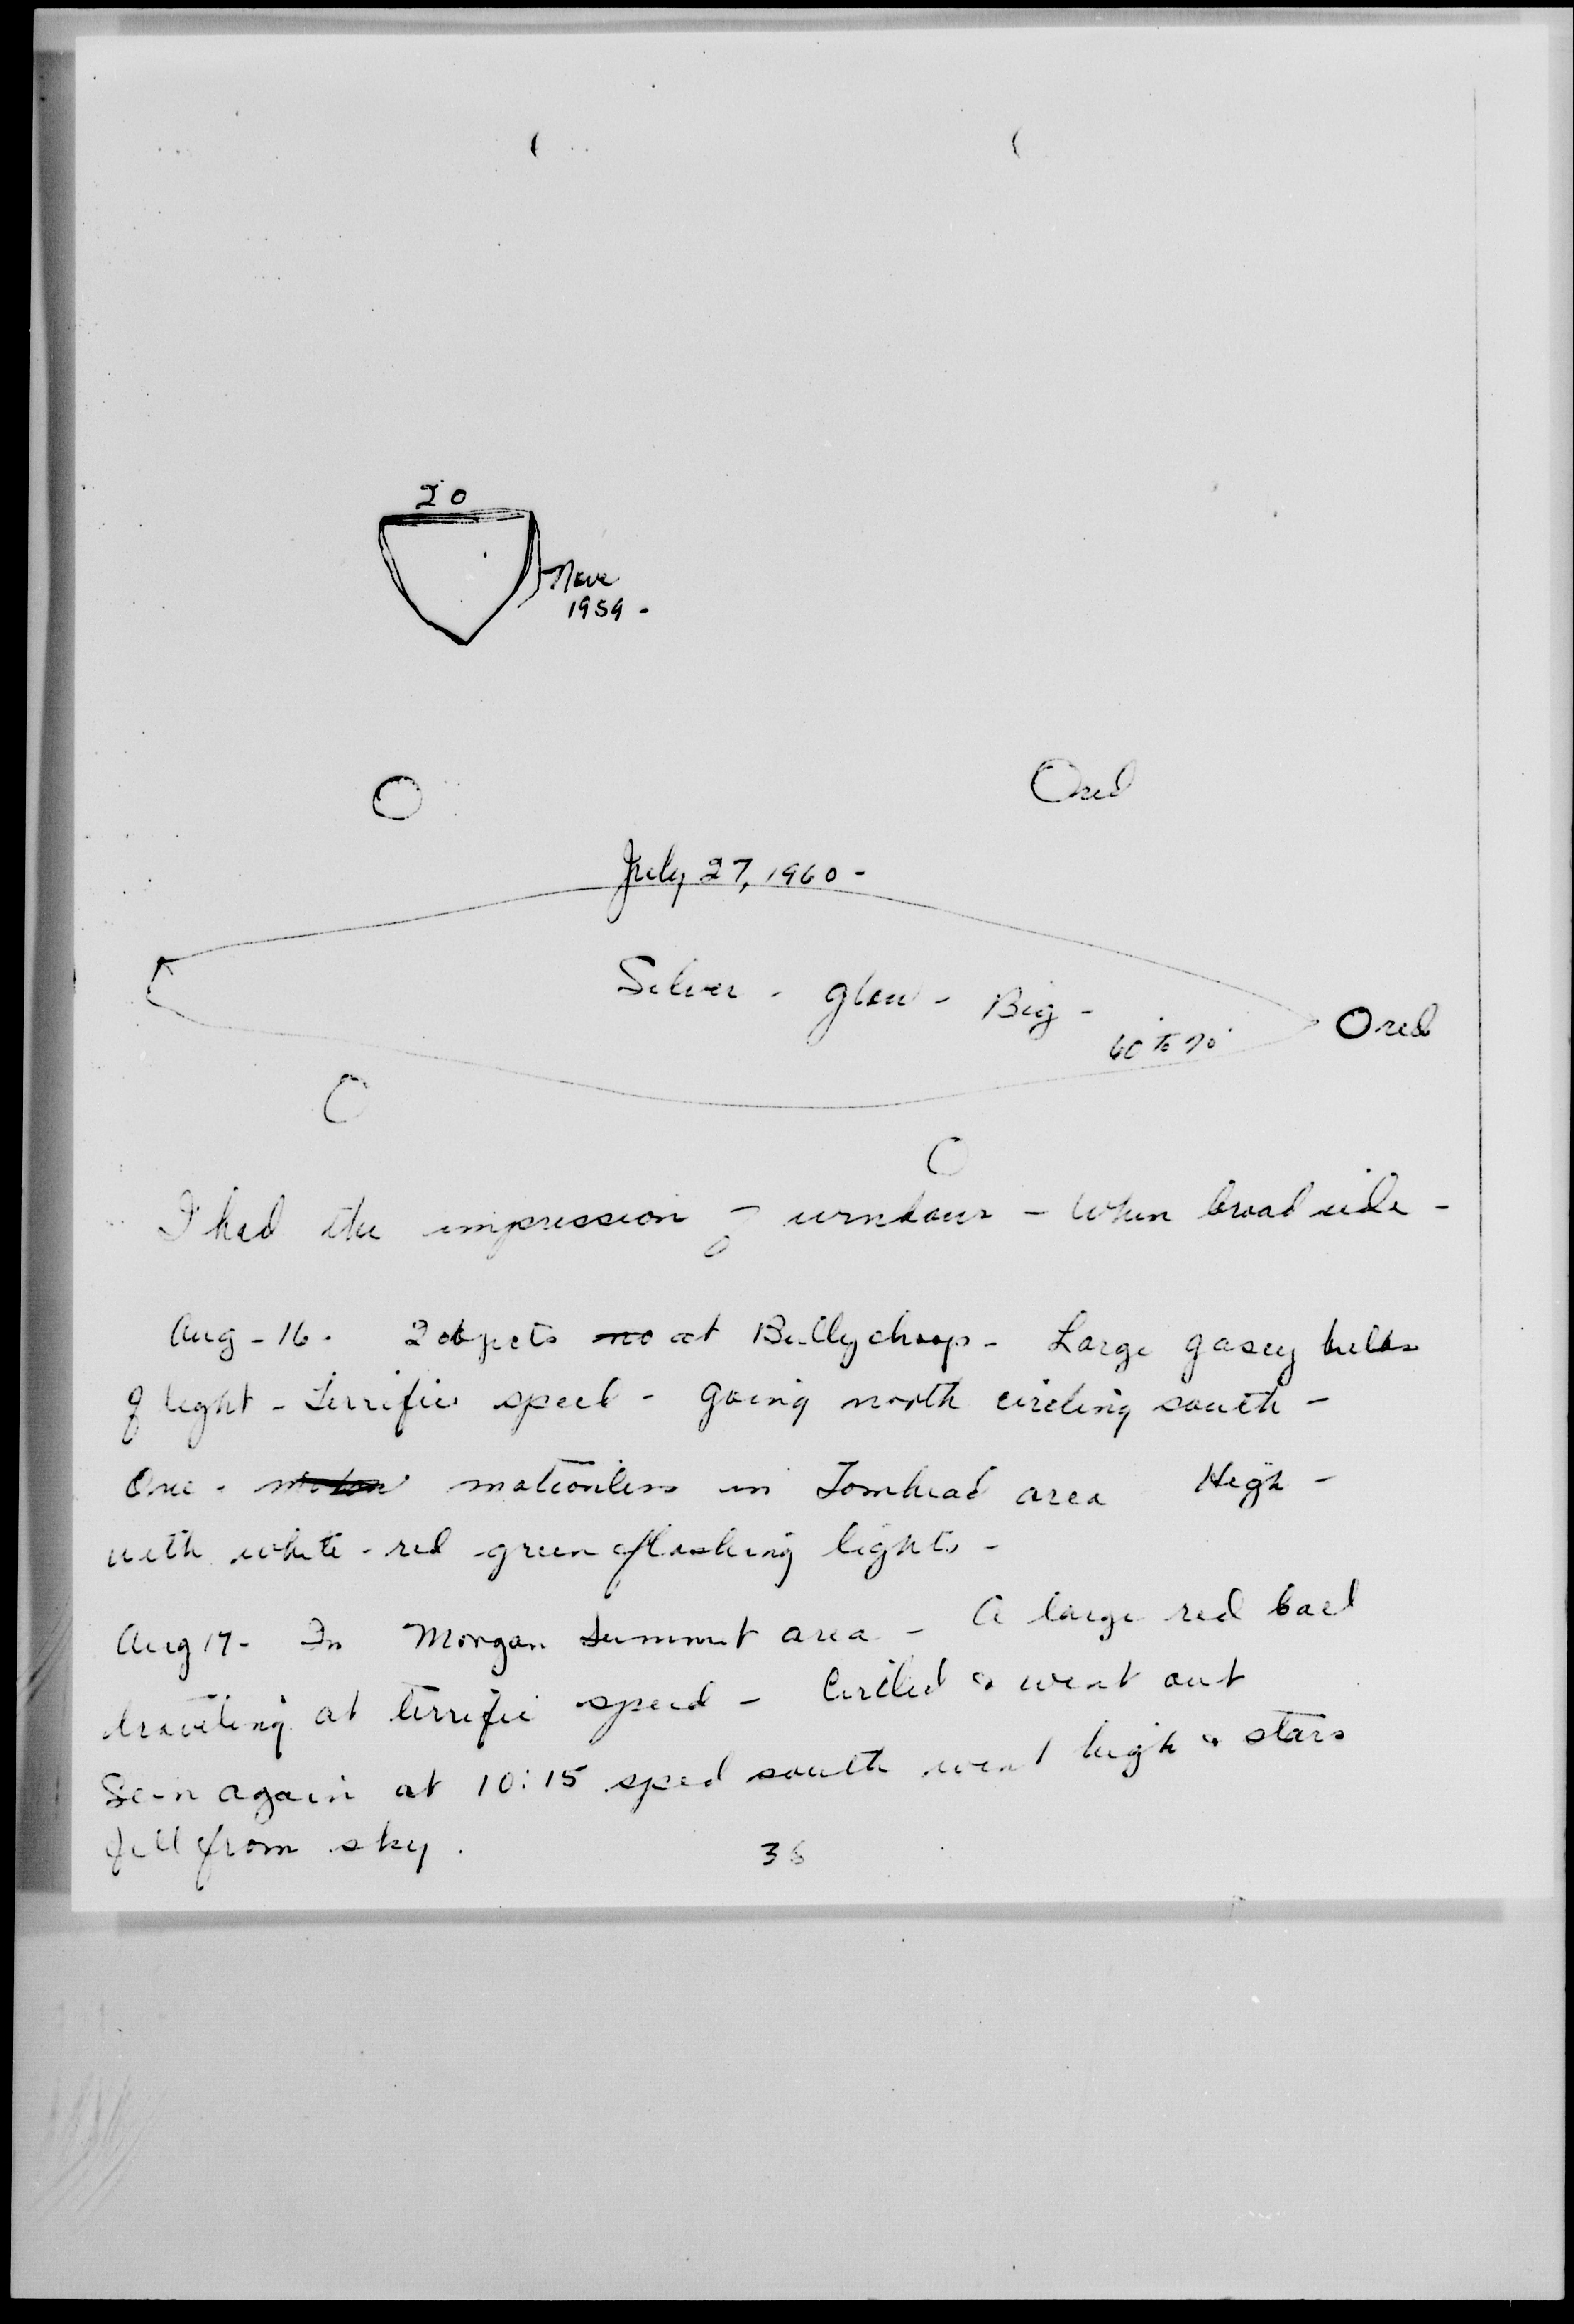 20
Nove
1959 -
O
O red
July 27, 1960 -
Silver - glow - Big -
60 to 70
O red
I had the impression of windows - When broadside -
Aug - 16. 2 objects no at Bullychoop - Large gasey
of light - Terrific speed - going north circling south -
One - motionless in Tomhead area High -
with white - red - green flashing lights -
Aug 17 - In Morgan Summit area - A large red ball
traveling at terrific speed - Circled & went out
Seen again at 10:15 sped south went high & stars
fell from sky.